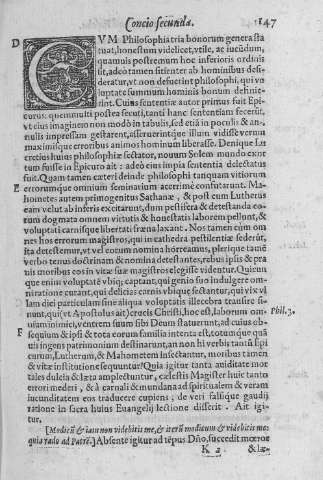 Concio secunda. 147
D
CVM Philosophia tria bonorum genera sta
tuat, honestum videlicet, vtile, ac iucūdum,
quamuis postremum hoc inferioris ordinis
sit, adeo tamen sitienter ab hominibus desi-
deratur, vt non defuerint philosophi, qui vo
luptate summum hominis bonum definie-
rint. Cuius sententiæ autor primus fuit Epi
curus: quem multi postea secuti, tanti hanc sententiam fecerūt,
vt eius imaginem non modò in tabulis, sed etiā in poculis & an-
nulis impressam gestarent, assererentque illum vidisse verum
maximisque erroribus animos hominum liberasse. Denique Lu
cretius huius philosophiæ sectator, nouum Solem mundo exor
tum fuisse in Epicuro ait: adeò eius impia sententia delectatus
fuit. Quam tamen cæteri deinde philosophi tanquam vitiorum
E
errorumque omnium seminarium acerrimè confutarunt. Ma-
hometes autem primogenitus Sathanæ, & post eum Lutherus
eam velut ab inferis excitarunt, dum pestifera & detestanda eo-
rum dogmata omnem virtutis & honestatis laborem pellunt, &
voluptati carnisque libertati fræna laxant. Nos tamen cùm om
nes hos errorum magistros, qui in cathedra pestilentiæ sederūt,
ita detestemur, vt vel eorum nomina horreamus, plerique tamē
verbo tenus doctrinam & nomina detestantes, rebus ipsis & pra
uis moribus eos in vitæ suæ magistros elegisse videntur. Quicun
que enim voluptatē vbique captant, qui genio suo indulgere om-
ni ratione curant, qui delicias carnis vbique sectantur, qui vix vl
lam diei particulam sine aliqua voluptatis illecebra transire si-
nunt, qui (vt Apostolus ait) crucis Christi, hoc est, laborum om-
Phil. 3.
nium inimici, ventrem suum sibi Deum statuerunt, ad cuius ob-
F
sequium & ipsi & tota eorum familia intenta est, totumque quā
uis ingens patrimonium destinarunt, an non hi verbis tantū Epi
curum, Lutherum, & Mahometem insectantur, moribus tamen
& vitæ institutione sequuntur? Quia igitur tanta auiditate mor
tales dulcia & læta amplectuntur, cælestis Magister huic tanto
errori mederi, & à carnali & mundana ad spiritualem & veram
iucunditatem eos traducere cupiens, de veri falsique gaudij
ratione in sacra huius Euangelij lectione disserit. Ait igi-
tur,
[Modicū & iam non videbitis me, & iterū modicum & videbitis me:
quia vado ad Patrē.] Absente igitur ad tēpus Dn̄o, succedit mœror
K 2 & læ-